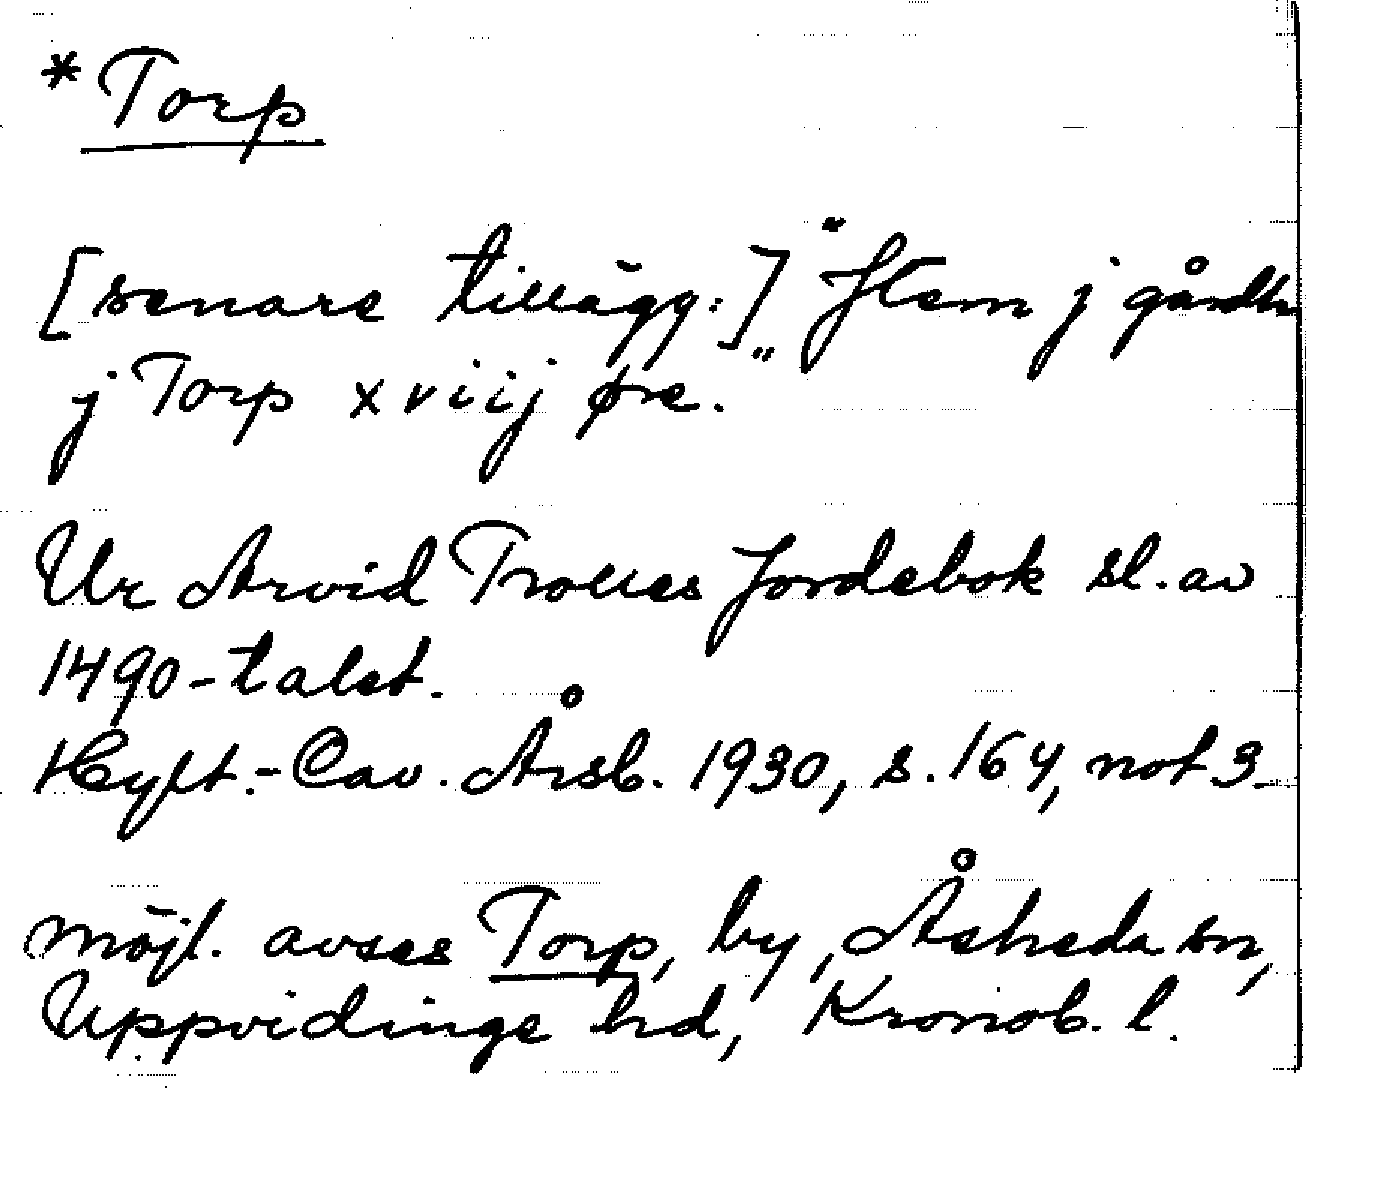 *Torp
[senare tillägg:] "Item j gårdh
j Torp xviij øre."
Ur Arvid Trolles Jordebok sl. av
1490-talet.
Hylt.-Cav. Årsb. 1930, s. 164, not 3
möjl. avses Torp, by, Åsheda sn,
Uppvidinge hd, Kronob. l.